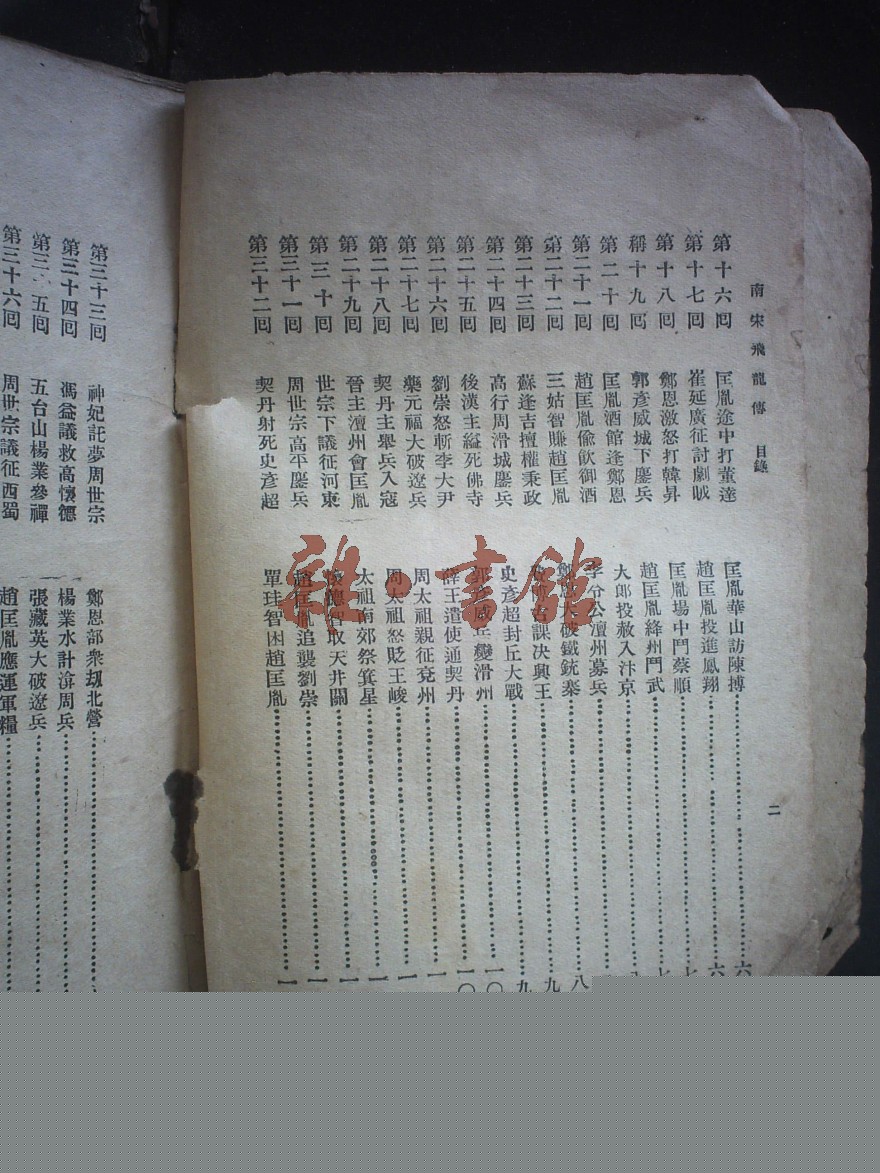 南宋飛龍傳 目錄 二
第十六回 匡胤途中打董達 匡胤華山訪陳摶 六
第十七回 崔延廣征討劇賊 趙匡胤投進鳳翔 六
第十八回 鄭恩激怒打韓昇 匡胤場中鬥蔡順 七
稱十九回 郭彥威城下鏖兵 趙匡胤絳州鬥武 七
第二十回 匡胤酒館逢鄭恩 大郎投赦入汴京
第二十一回 趙匡胤偷飲御酒 李兮公澶州募兵
第二十二回 三姑智賺趙匡胤 鄭恩大破鐵銃寨 八
第二十三回 蘇逢吉擅權秉政 宮課決興王 九
第二十四回 高行周滑城鏖兵 史彥超封丘大戰 九
第二十五回 後漢主縊死佛寺 郭彥威兵變滑州 一〇
第二十六回 劉崇怒斬李大尹 薛王遣使通契丹 一〇
第二十七回 藥元福大破遼兵 周太祖親征兗州 一
第二十八回 契丹主舉兵入寇 周太祖怒貶王峻 一
第二十九回 晉主澶州會匡胤 太祖南郊祭箕星 一
第三十回 世宗下議征河東 智取天井關 一
第三十一回 周世宗高平鏖兵 趙匡胤追襲劉崇 一
第三十二回 契丹射死史彥超 單珪智困趙匡胤 一
第三十三回 神妃託夢周世宗 鄭恩部衆刼北營
第三十四回 馮益議救高懷德 楊業水計渰周兵
第三十五回 五台山楊業參禪 張藏英大破遼兵
第三十六回 周世宗議征西蜀 趙匡胤應運軍糧
雜·書館